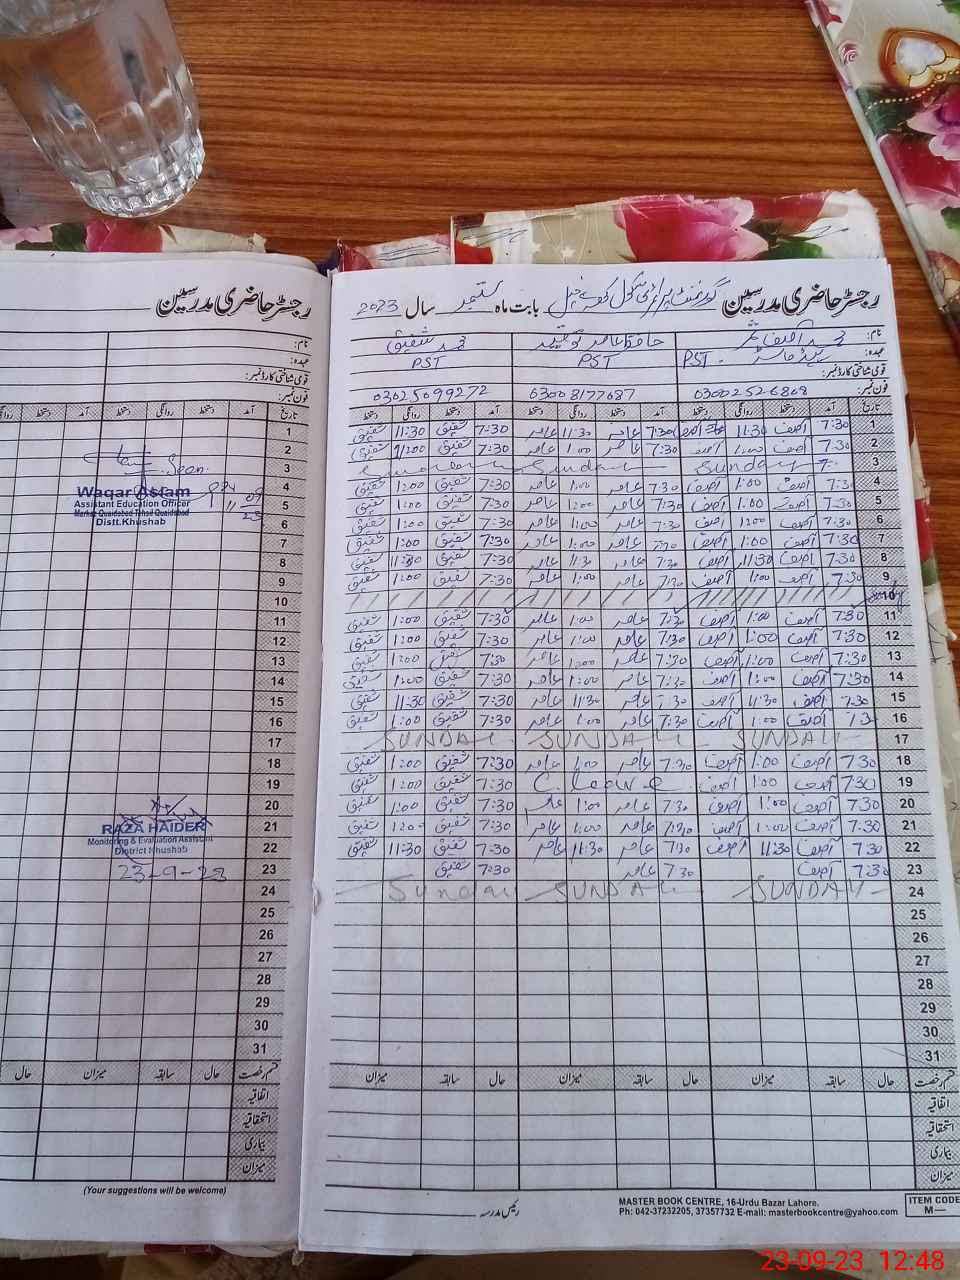 رجسٹر حاضری مدرسین گورنمنٹ پرائمری سکول بابت ماہ ستمبر سال 2023
نام: محمد آصف حافظ عامر محمد شفیق
عہدہ: PST PST PST
قومی شناختی کارڈ نمبر:
فون نمبر: 03002526808 03008177087 03025099272
تاریخ آمد دستخط روانگی دستخط آمد دستخط روانگی دستخط آمد دستخط روانگی دستخط
1 7:30 آصف 11:30 7:30 عامر 11:30 عامر 7:30 شفیق 11:30 شفیق
2 7:30 آصف 1:00 آصف 7:30 عامر 1:00 عامر 7:30 شفیق 1:00 شفیق
3 Sunday Sunday
4 7:30 آصف 1:00 آصف 7:30 عامر 1:00 عامر 7:30 شفیق 1:00 شفیق
5 7:30 آصف 1:00 آصف 7:30 عامر 1:00 عامر 7:30 شفیق 1:00 شفیق
6 7:30 آصف 1:00 آصف 7:30 عامر 1:00 عامر 7:30 شفیق 1:00 شفیق
7 7:30 آصف 1:00 آصف 7:30 عامر 1:00 عامر 7:30 شفیق 1:00 شفیق
8 7:30 آصف 11:30 آصف 7:30 عامر 11:30 عامر 7:30 شفیق 11:30 شفیق
9 7:30 آصف 1:00 آصف 7:30 عامر 1:00 عامر 7:30 شفیق 1:00 شفیق
10
11 7:30 آصف 1:00 آصف 7:30 عامر 1:00 عامر 7:30 شفیق 1:00 شفیق
12 7:30 آصف 1:00 آصف 7:30 عامر 1:00 عامر 7:30 شفیق 1:00 شفیق
13 7:30 آصف 1:00 آصف 7:30 عامر 1:00 عامر 7:30 شفیق 1:00 شفیق
14 7:30 آصف 1:00 آصف 7:30 عامر 1:00 عامر 7:30 شفیق 1:00 شفیق
15 7:30 آصف 11:30 آصف 7:30 عامر 11:30 عامر 7:30 شفیق 11:30 شفیق
16 7:30 آصف 1:00 آصف 7:30 عامر 1:00 عامر 7:30 شفیق 1:00 شفیق
17 SUNDAY SUNDAY SUNDAY
18 7:30 آصف 1:00 آصف 7:30 عامر 1:00 عامر 7:30 شفیق 1:00 شفیق
19 7:30 آصف 1:00 آصف C. Leave 7:30 شفیق 1:00 شفیق
20 7:30 آصف 1:00 آصف 7:30 عامر 1:00 عامر 7:30 شفیق 1:00 شفیق
21 7:30 آصف 1:00 آصف 7:30 عامر 1:00 عامر 7:30 شفیق 1:00 شفیق
22 7:30 آصف 11:30 آصف 7:30 عامر 11:30 عامر 7:30 شفیق 11:30 شفیق
23 7:30 آصف 7:30 عامر 7:30 شفیق
24 SUNDAY SUNDAY Sunday
25
26
27
28
29
30
31
قسم رخصت حال سابقہ میزان حال سابقہ میزان حال سابقہ میزان
اتفاقیہ
استحقاقیہ
بیماری
میزان
رئیس مدرسہ
MASTER BOOK CENTRE, 16-Urdu Bazar Lahore.
Ph: 042-37232205, 37357732 E-mail: masterbookcentre@yahoo.com
ITEM CODE
M—
رجسٹر حاضری مدرسین
نام:
عہدہ:
قومی شناختی کارڈ نمبر:
فون نمبر:
تاریخ آمد دستخط روانگی دستخط آمد روانگی
1
2
3 Seen
4
Waqar Aslam
Assistant Education Officer
5
Markaz Quaidabad Tehsil Quaidabad
Distt.Khushab
6
7
8
9
10
11
12
13
14
15
16
17
18
19
20
21 RAZA HAIDER
Monitoring & Evaluation Assistant
22 District Khushab
23 23-9-23
24
25
26
27
28
29
30
31
قسم رخصت حال سابقہ میزان حال
اتفاقیہ
استحقاقیہ
بیماری
میزان
(Your suggestions will be welcome)
23-09-23 12:48